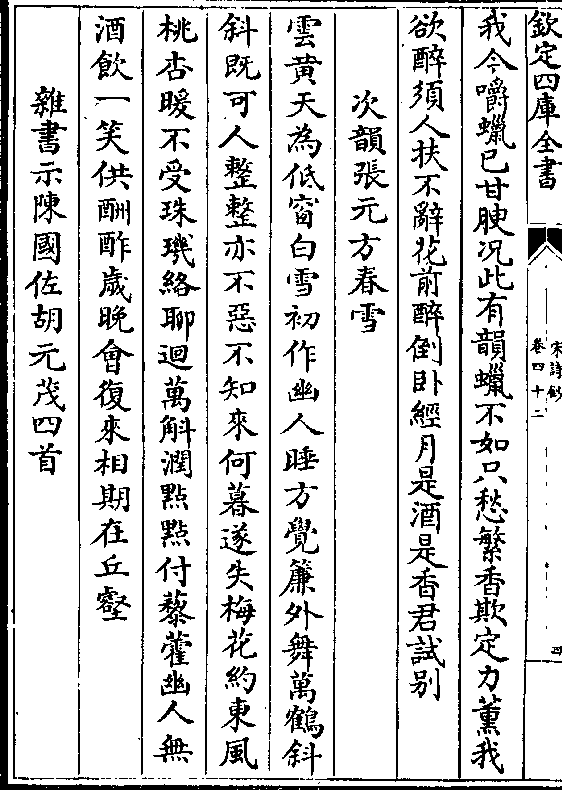 欽定四庫全書
宋詩鈔
卷四十二
四
我今嚼蠟已甘腴况此有韻蠟不如只愁繁香欺定力薰我
欲醉須人扶不辭花前醉倒卧經月是酒是香君試别
次韻張元方春雪
雲黄天為低窗白雪初作幽人睡方覺簾外舞萬鶴斜
斜既可人整整亦不惡不知來何暮遂失梅花約東風
桃杏暖不受珠璣絡聊迴萬斛潤點點付藜藿幽人無
酒飲一笑供酬酢歲晚會復來相期在丘壑
雜書示陳國佐胡元茂四首